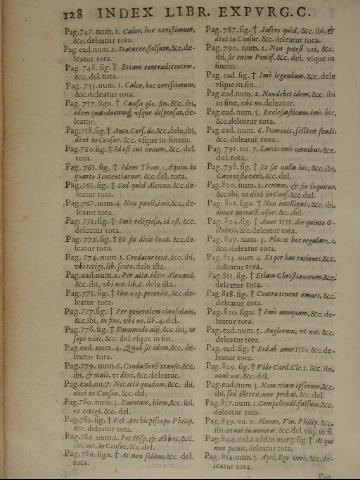 128 INDEX LIBR. EXPVRG. C.
Pag. 747. num. 1. Calor, hoc verissimum,
&c. deleatur tota.
Pag. ead. num. 2. Statuere, falsum, &c. de-
leatur tota.
Pag. 748. sig. † Etiam contradicentem,
&c. del. tota.
Pag. 753. num. 1. Calor, hoc verissimum,
&c. deleatur tota.
Pag. 757. sign. † Causa glo. fin. &c. ibi,
idem quandoque, vsque dispensat, de-
leatur.
Pag. 758. sig. † Auto. Casf. de. &c. dele, ibi,
dixi in Consue. &c. vsque in finem.
Pag. 760. sig. † Id est ius novum, &c.
del. tota.
Pag. 761. sig. † Idem Thom. Aquin. in
quarto Sententiarum. &c. del. tota.
Pag. 765. sig. † Sed quid Alexan. &c. de-
leatur tota.
Pag. 767. num. 4. Nou patris, imò, &c. de-
leatur tota.
Pag. 771. sig. † Imò religiosa, id est. &c.
deleatur tota.
Pag. 772. sig. † Et sic dicit Ioan. &c. de-
leatur tota.
Pag. 774. num. 1. Creditur text. &c. ibi,
vbi tetigi, lib. sexto. dele ista.
Pag. ead. num. 2. Per alia. idem Alexand.
&c. ibi, vbi not. lib. 6. dele ista.
Pag. 775. sig. † Hoc cap. procedit, &c. de-
leatur tota.
Pag. 777. sig. † Per generalem clausulam,
&c. ibi, in fine, vbi no. lib. 4. del.
Pag. 778. sig. † Duummodo alij. &c. ibi, vt
supè vide, &c. del. vsque in fin.
Pag. ead. num. 4. Quod sic idem, &c. de-
leatur tota.
Pag. 779. num. 6. Conducere transit, &c.
ibi, & mali. vt dixi, &c. deleatur.
Pag. ead. nu. 7. Not. etiā quodam. &c. ibi,
dixi in Consue. &c. del.
Pag. 780. num. 1. Eucutam, idem, &c. ibi,
vt tetigi. &c. del.
Pag. 785. sig. † Vel Archiepiscopo Philip.
&c. deleatur tota.
Pag. 786. num. 1. Pet. Hisp. & Abbas, &c.
ibi, vt in Consue. &c. del.
Pag. 786. sign. † At non solùm, &c. del.
tota.
Pag. 787. sig. † Infero quòd. &c. ibi, &
dixi, &c. deleatur tota.
Pag. 790. num. 1. Non potest viri, &c.
ibi, sic enim Pontif. &c. del. vsque in
finem.
Pag. ead. sig. † Imò legendum. &c. dele
vsque in fin.
Pag. ead. num. 2. Non debet idem, &c. ibi
in fine, vbi no. deleatur.
Pag. ead. num. 5. Ecclesiasticum. imò &c.
deleatur tota.
Pag. ead. num. 6. Dominis, scilicet feudi.
&c. deleatur tota.
Pag. 791. nu. 7. Lucris imò omnibus, &c.
del. tota.
Pag. 798. sig. † Et sic nulla hic, &c. ibi,
Caueas sic verò, &c. del.
Pag. 800. num. 1. certum, & sic loquitur,
&c. ibi, vt dixi in Consue. &c. del.
Pag. 801. sign. † Non intelligat. &c. ibi,
donec interest. vsur. &c. del.
Pag. 804. sig. † Anno 1551. die quinto O-
ctobris, &c. deleatur tota.
Pag. 807. num. 3. Placet hoc regulare. &c.
deleatur tota.
Pag. 813. num. 4. Et per has rationes, &c.
deleatur tota.
Pag. 815. sig. † Etiam Christianorum, &c.
deleatur tota.
Pag. 818. sig. † Contra tenent omnes, &c.
deleatur tota.
Pag. 820. sign. † Imò nunquam, &c. de-
leatur tota.
Pag. ead. num. 5. Anglorum, vt not. &c.
deleatur tota.
Pag. ead. sig. † Sed ab anno 1550. &c. de-
leatur tota.
Pag. 829. sig. † Vide Card. Cle. 1. &c. ibi,
modi not. &c. del.
Pag. ead. num. 3. Non etiam ipsorum, &c.
ibi, sed ille tex. non probat, &c. del.
Pag. 837. num. 1. Compellendi. fallum, &c.
deleatur tota.
Pag. 839. nu. 2. Alanus, Vin. Philip. &c.
ibi vt not. in annotat. &c. del. vsque in fi.
Pag. 844. col. 1. add. in marg. sig. † At qui
non potuit, deleatur tota.
Pag. 851. num. 5. Apri, Ego verò, &c. de-
leatur tota.
Pag.